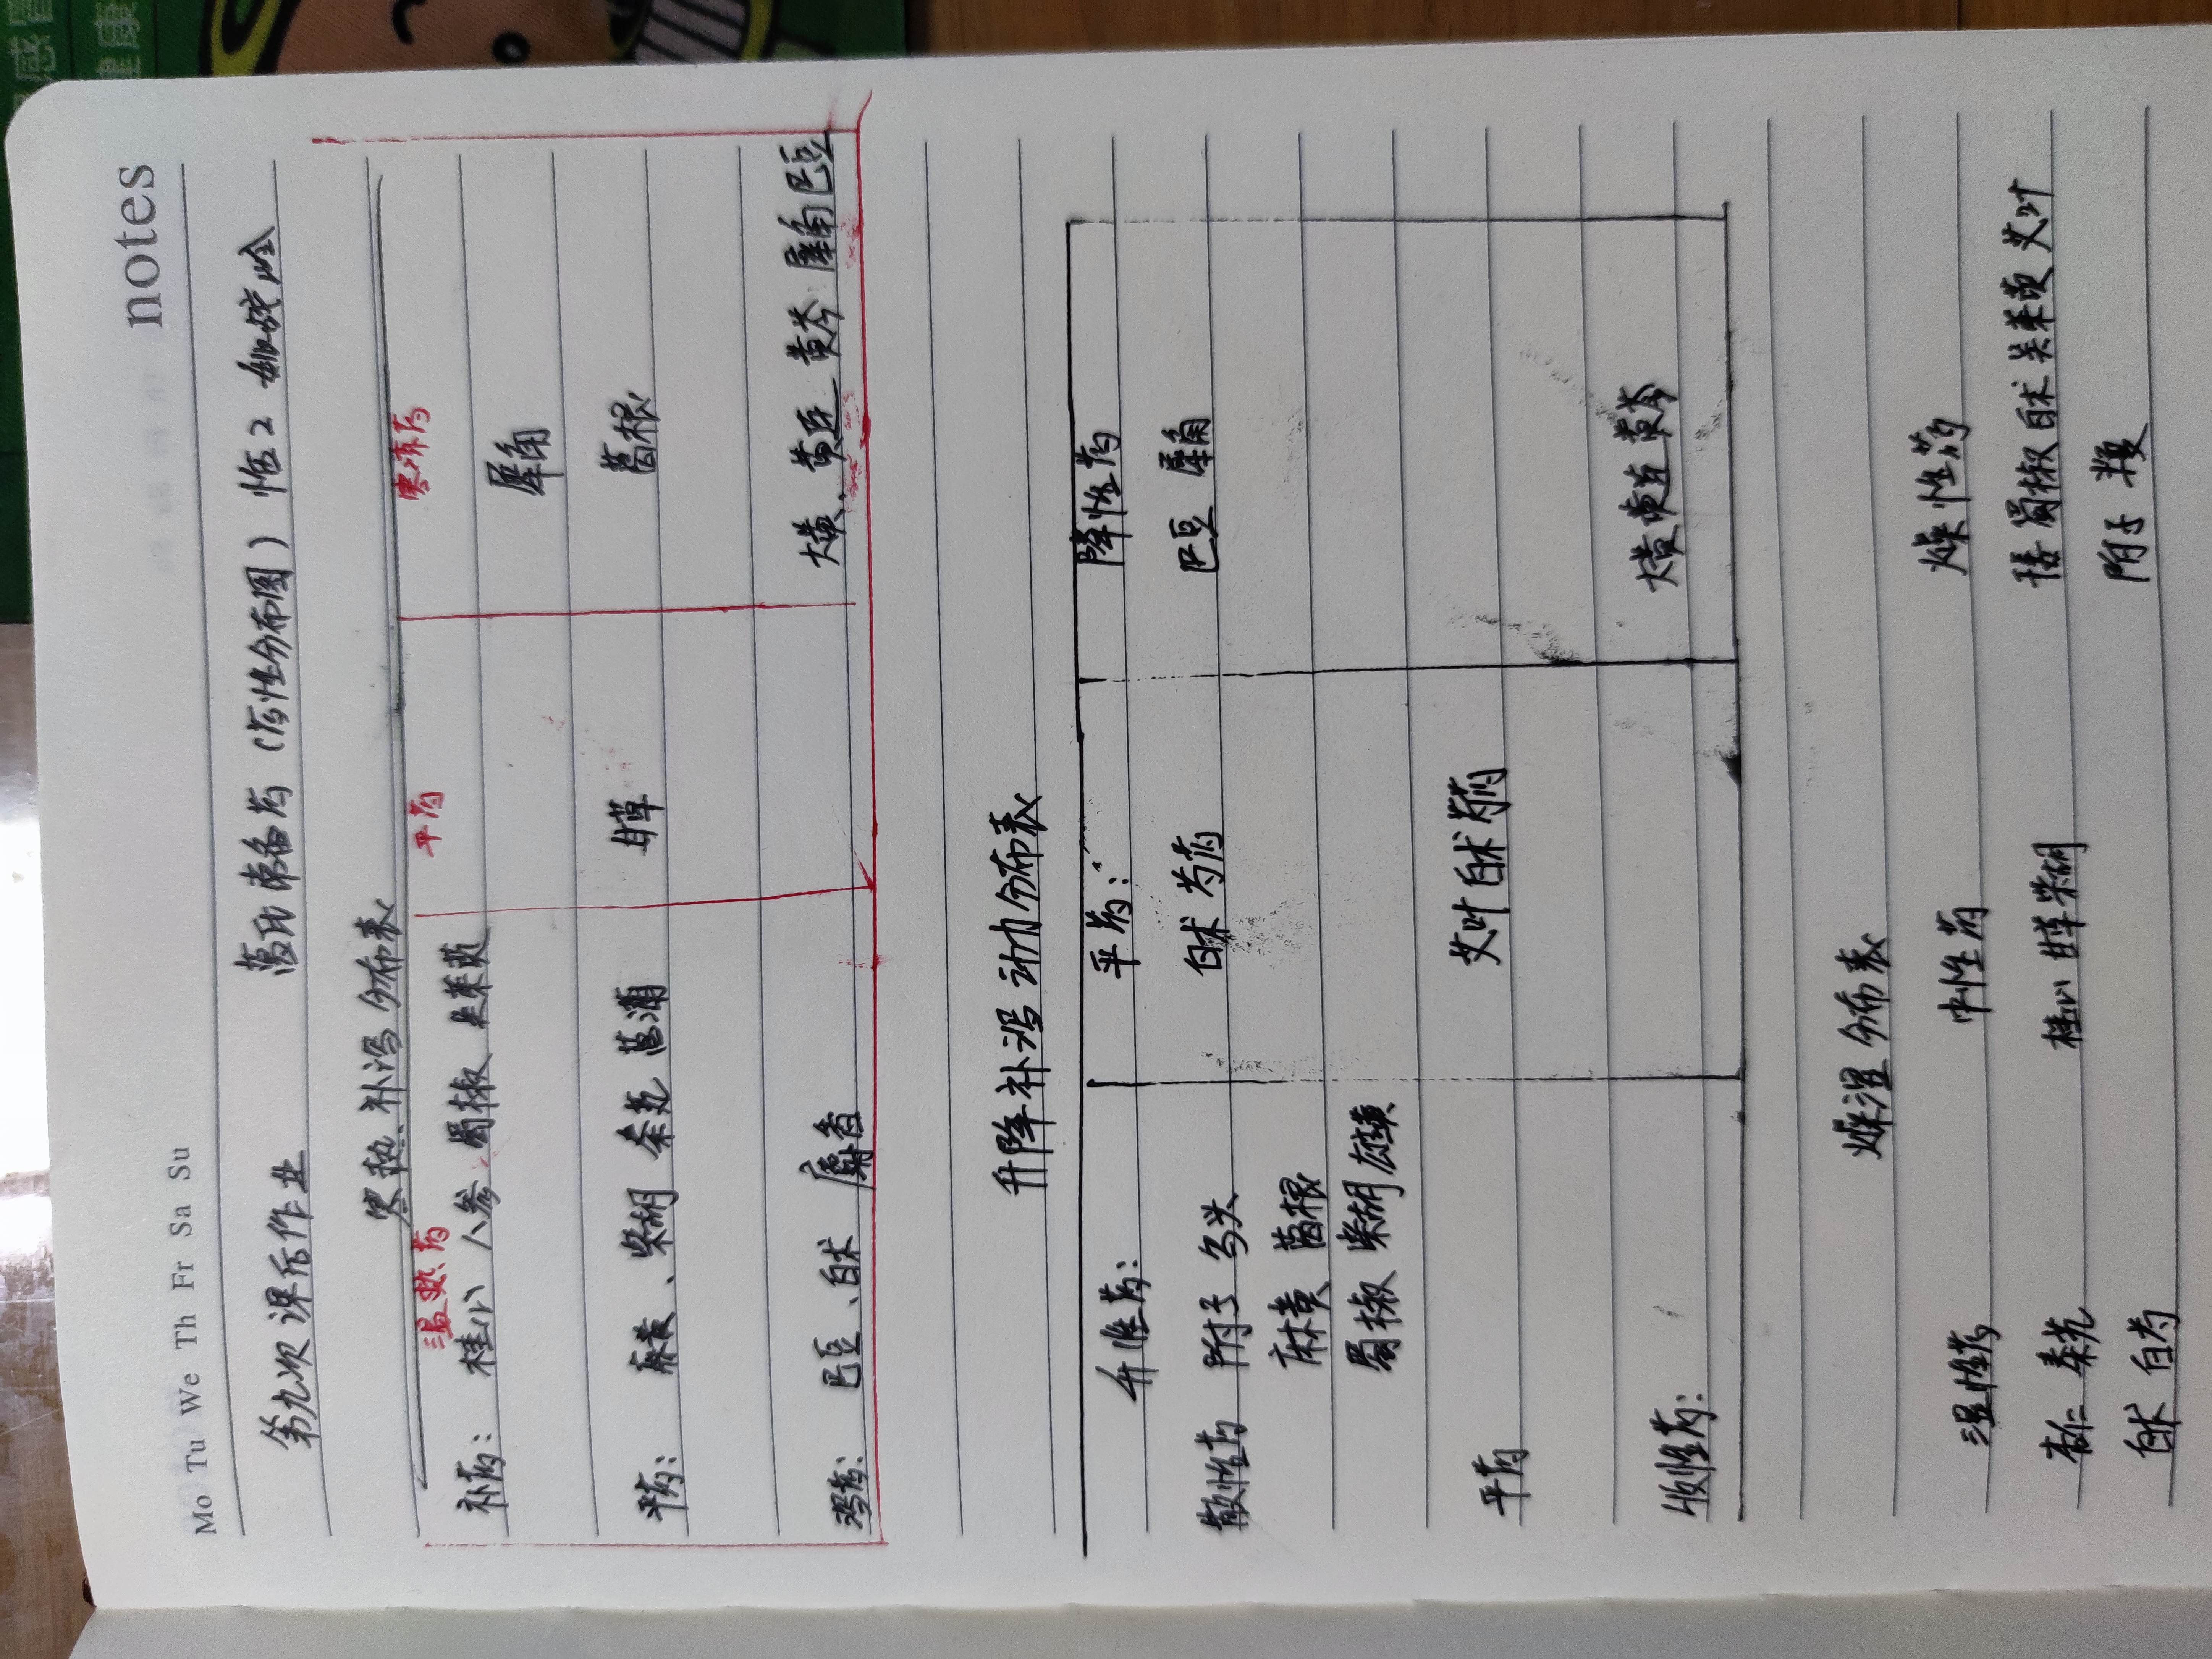 notes
Mo Tu We Th Fr Sa Su
第九次课后作业 葛氏常备药（药性分布图）恒2
寒热补泻分布表
温热药 平药 寒凉药
补药： 桂心 人参 蜀椒 吴茱萸 犀角
平药： 麻黄、柴胡 秦艽 菖蒲 甘草 葛根
泻药： 巴豆、白术 麝香 大黄、黄连 黄芩 犀角 巴豆
升降补泻动力分布表
升性药： 平药： 降性药
散性药 附子 乌头 白术 芍药 巴豆 犀角
麻黄 葛根
蜀椒 柴胡 雄黄
平药 艾叶 白术 芍药
收性药： 大黄 黄连 黄芩
燥湿分布表
湿性药 中性药 燥性药
杏仁 秦艽 桂心 甘草 柴胡 蜀椒 白术 吴茱萸 艾叶
白术 白芍 附子